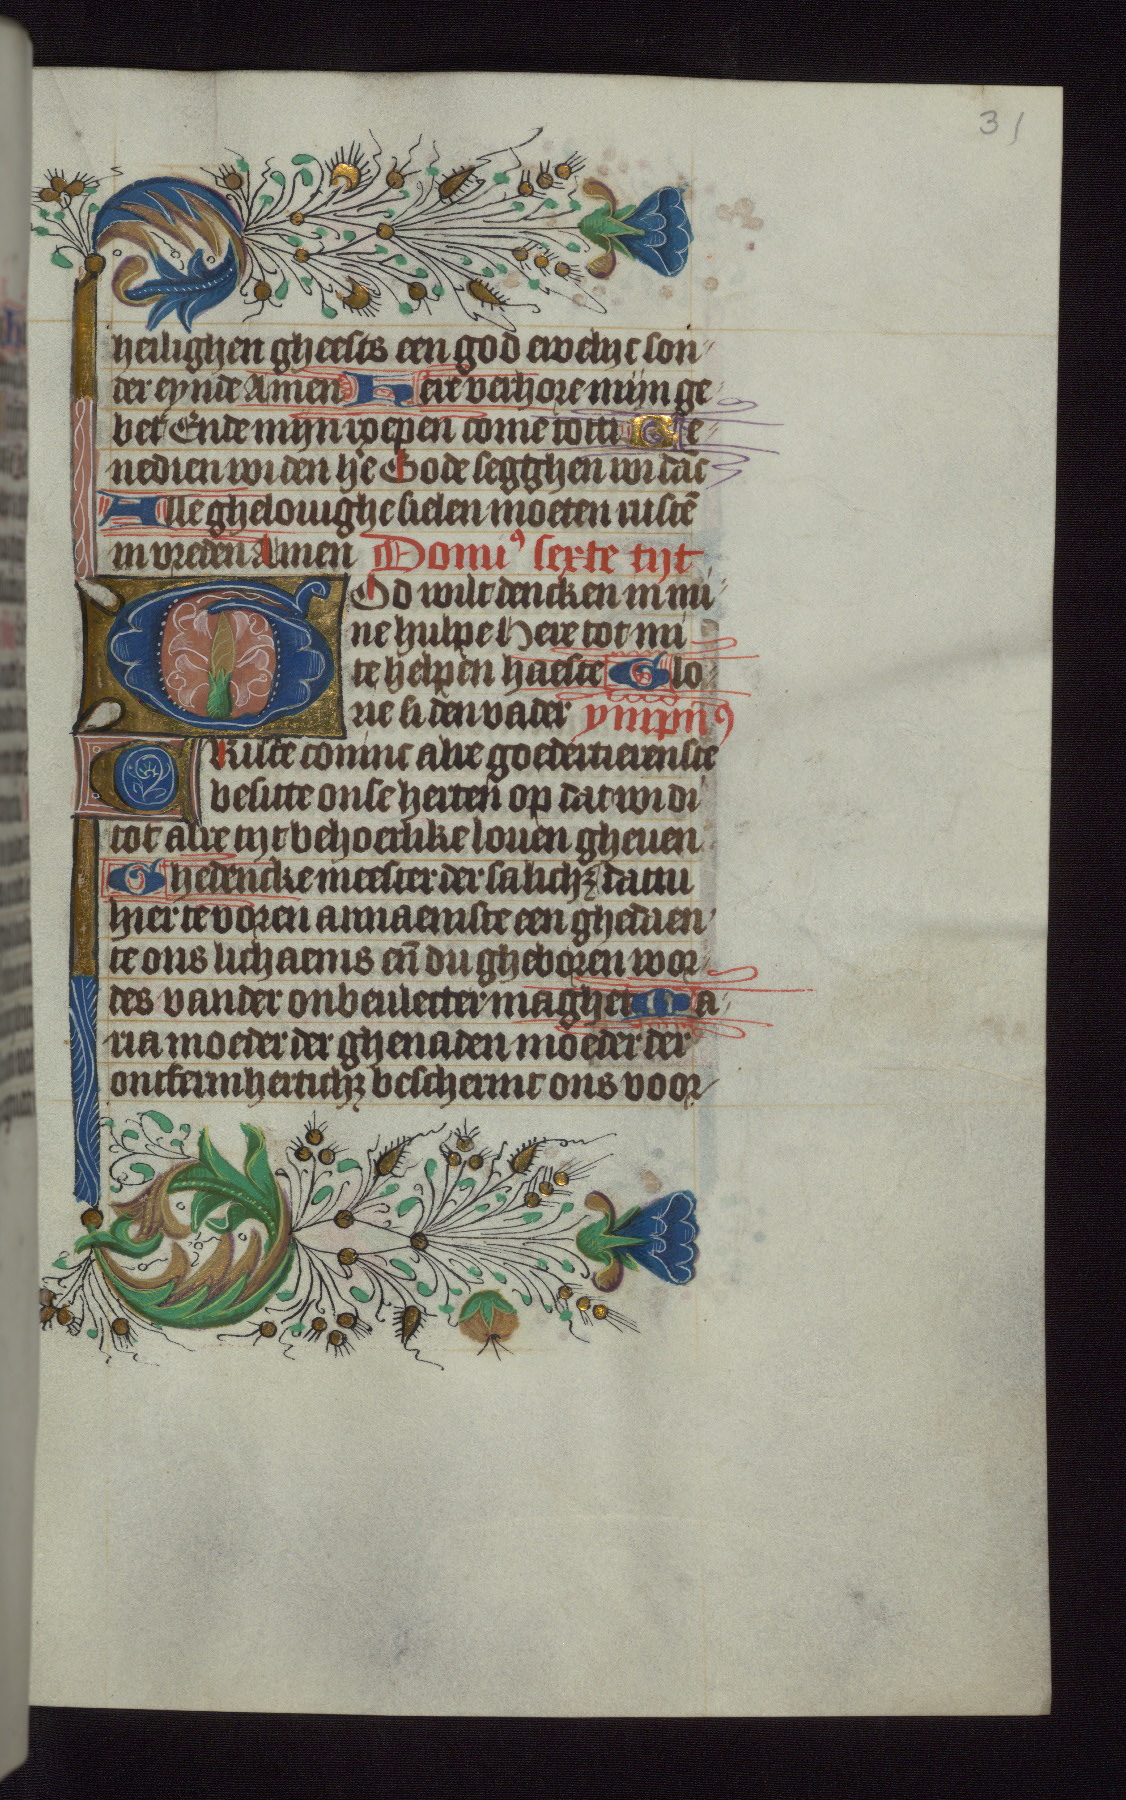 31
heilighen gheests een god ewelijc son
der eynde Amen Here verhore mijn ge
bet Ende mijn roepen come totti Be
nedien wi den he͂ Gode segghen wi dāc
Alle ghelovighe sielen moeten rustē
in vreden Amen Domi⁹ sexte tijt
God wilt dencken in mi
ne hulpe Here tot mi
te helpen haeste Glo
rie si den vader ympn̄⁹
Kriste comint alre goedertierenste
besitte onse herten op dat wi di
tot alre tijt behoerlike loven gheven
Ghedencke meester der salichꝫ dattu
hier te voren annaemste een ghedaen
te ons lichaems eñ du gheboren wor
des vander onbevlecter maghet Ma
ria moeder der ghenaden moeder der
ontfermhertichꝫ beschermt ons voor